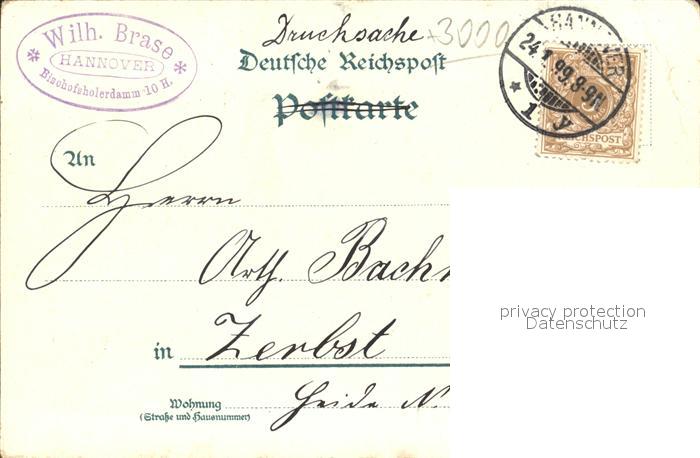 Wilh. Brase
HANNOVER
Bischofsholerdamm 10 H.
Drucksache
3000
Deutsche Reichspost
Postkarte
HANNOVER
24.1.99.8-9V
1 y
REICHSPOST
An
Herrn
Arth. Bach
privacy protection
Datenschutz
in Zerbst
Wohnung
(Straße und Hausnummer)
Heide N.